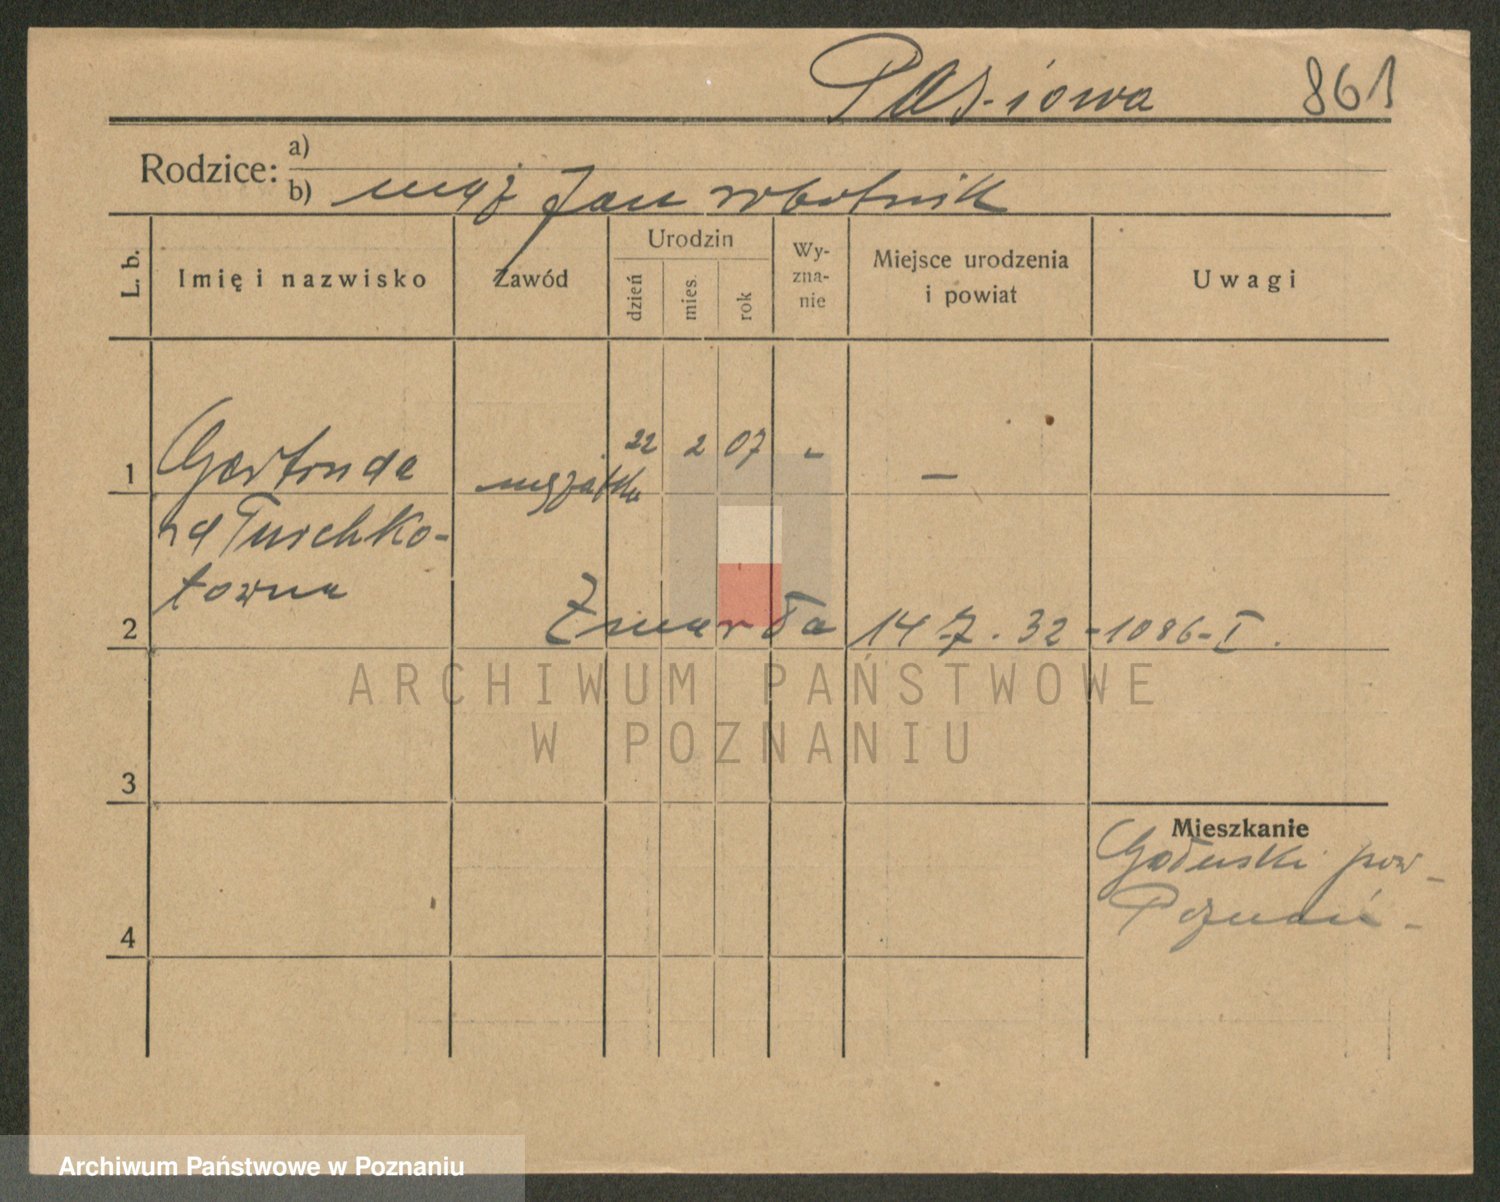 861
Rodzice: a)
b) mąż Jan robotnik
L. b.
Imię i nazwisko
Zawód
Urodzin
dzień
mies.
rok
Wy-
zna-
nie
Miejsce urodzenia
i powiat
Uwagi
1 Gertruda mężatka 22 2 07 - —
zd Tuschko-
towna
2 Zmarła 14-7.32-1086-I.
ARCHIWUM PAŃSTWOWE
W POZNANIU
3
Mieszkanie
pow-
Poznań-
4
Archiwum Państwowe w Poznaniu